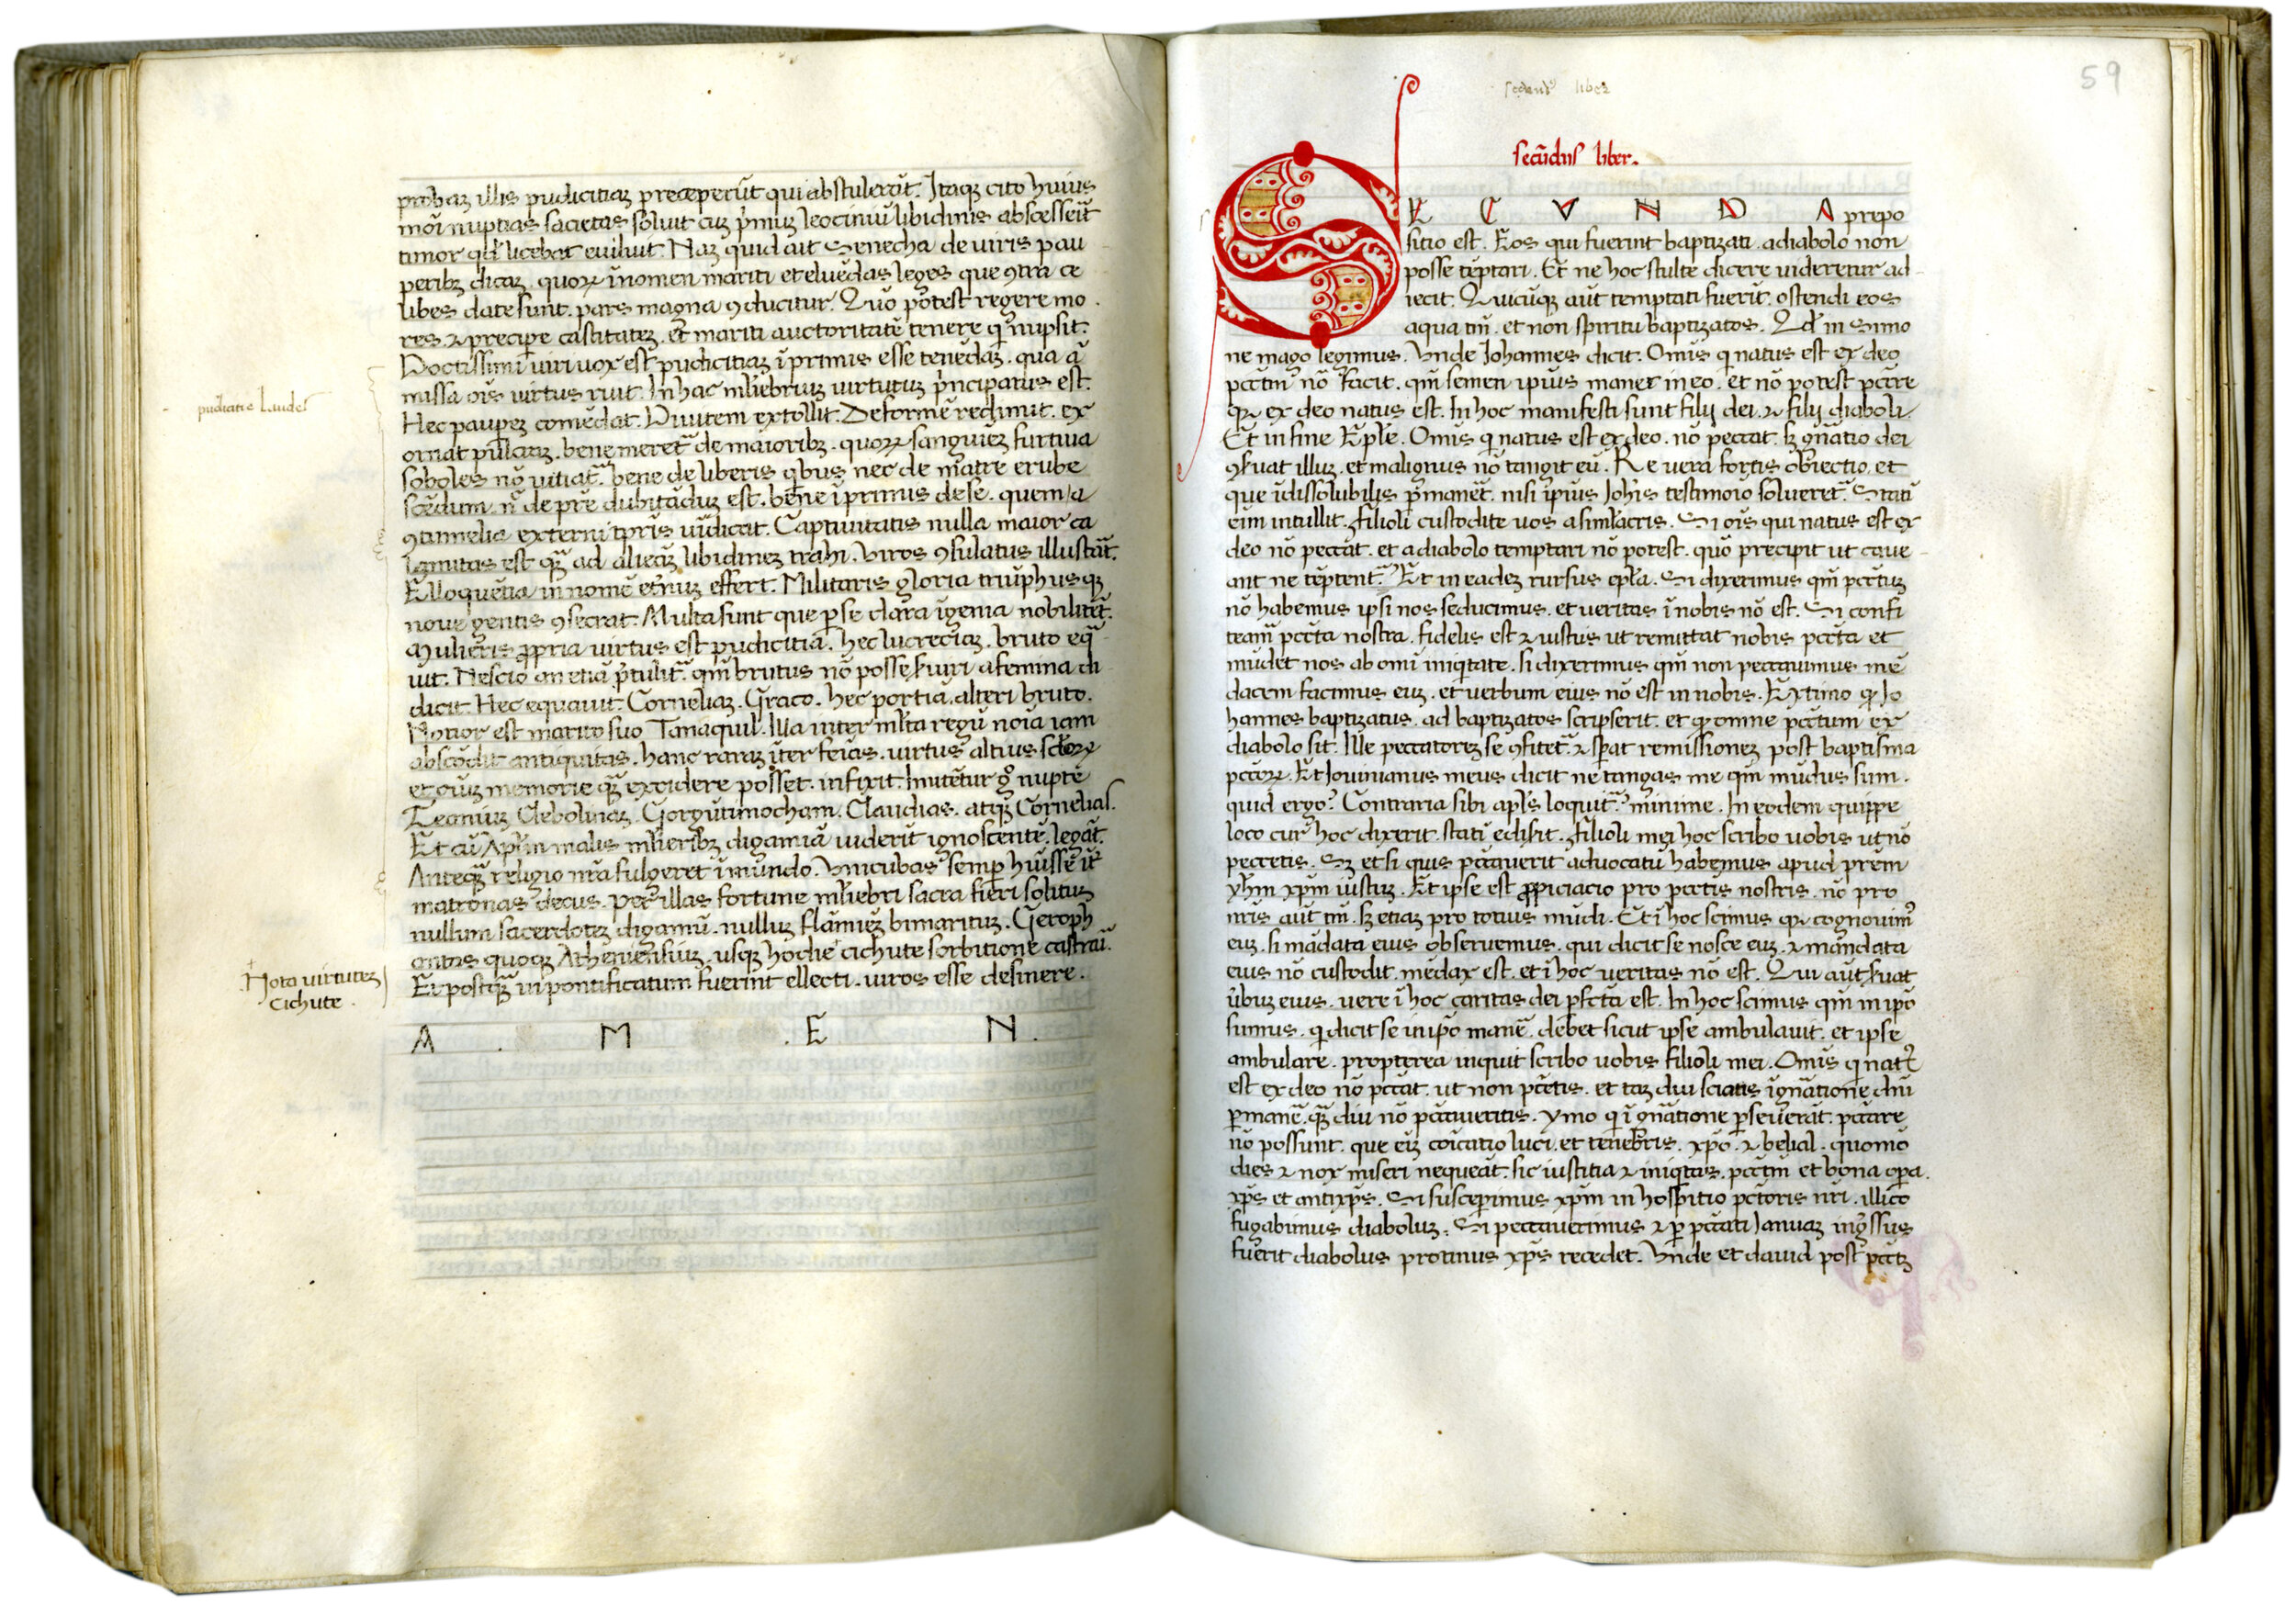 probaꝫ illis pudicitiaꝫ preceperūt qui abstulerūt. Itaqꝫ cito huius
mōi nuptias sacietas soluit cuꝫ p̄miuꝫ leocīniū libidinis abscesserit
timor qd̄ licebat euiluit. Naꝫ quid ait Senecha de viris pau
peribꝫ dicaꝫ. quoꝝ ī nomen mariti et eluēdas leges que ꝯtra ce
libes date sunt. pars magna ꝯducitur. Quō potest regere mo
res. ⁊ precipe castitateꝫ. et mariti auctoritatē tenere q̄ nupsit.
Doctissimi viri uox est pudicitiaꝫ ī primis esse tenēdaꝫ. qua a
missa oīs virtus ruit. In hac mlīebriuꝫ uirtutuꝫ p̄ncipatus est.
Hec paupeꝫ comēdat. Diuitem extollit. Deformē redimit. ex
ornat pulcraꝫ. bene meretᷓ de maioribꝫ. quoꝝ sanguineꝫ furtiua
soboles nō uitiat. bene de liberis qbus nec de matre erube
scēdum. n̄ de pr̄e dubitāduꝫ est. bene ī primis de se. quem a
ꝯtumelia externi corpīs uīdicat. Captiuitatis nulla maior ca
lamitas est qꝫ ad alienaꝫ libidineꝫ trahi. Viros ꝯsulatus illustrat.
Elloquētia in nomē eternuꝫ effert. Militaris gloria triūphusqꝫ
noue gentis ꝯsecrat. Multa sunt que p̱ se clara īgenia nobilitēt.
Mulieris ꝓpria uirtus est pudicitia. hec lucreciaꝫ. bruto eqᷓ
uit. Nescio an etiā p̄tulit. qm̄ brutus nō posse ẜuiri a femina di
dicit. Hec equauit. Corneliaꝫ. Graco. hec portiā. alteri bruto.
Notior est marito suo Tanaquil. Illa inter ml̄ta regū noīa iam
abscōdit antiquitas. hanc raraꝫ īter feīas. uirtus altius scl̄oꝝ
et oīuꝫ memorie qꝫ excidere posset. infixit. Imitētur gͦ nupte
Teaniuꝫ Clebolinaꝫ. Gorgūtimocham. Claudias. atqꝫ Cornelias.
Et cū Apl̄m malis ml̄ieribꝫ digamiā uiderīt ignoscentē. legāt.
Anteqꝫ religio nr̄a fulgeret ī mundo. Vnicubas semp̱ huisse īt̄
matronas decus. per illas fortune ml̄iebri sacra fieri solituꝫ
nullum sacerdoteꝫ digamū. nulluꝫ flamineꝫ bimarituꝫ. Geroph
antas quoqꝫ Atheniensiuꝫ. usqꝫ hodie cichute sorbitione castrari.
Et postqꝫ in pontificatum fuerint ellecti. uiros esse desinere.
A . M . E N .
pudicitie laudes
Nota uirtuteꝫ
cichute .
59
secund9 liber
secūdus liber.
S E C V N D A prepo
sitio est. Eos qui fuerint baptizati. a diabolo non
posse tēptari. Et ne hoc stulte dicere uideretur ad
iecit. Quicūqꝫ aūt temptati fuerīt. ostendi eos
aqua tm̄. et non spiritu baptizatos. Qd̄ in Simo
ne mago legimus. Vnde Iohannes dicit. Omīs q̇ natus est ex deo
pcc̄tm̄ nō facit. qm̄ semen ipsius manet in eo. et nō potest pcc̄are
qꝛ ex deo natus est. In hoc manifesti sunt filij dei. ⁊ filij diaboli.
Et in fine Epl̄e. Omīs q̇ natus est ex deo. nō peccat. sꝫ gn̄atio dei
ꝯẜuat illuꝫ. et malignus nō tangit eū. Re uera fortis obiectio. et
que īdissolubilis p̱manet. nisi ipsius Ioh̄is testimōio solueretᷓ. Stati
eim intullit. filioli custodite uos a simlacris. Si oīs qui natus est ex
deo nō peccat. et a diabolo temptari nō potest. quō precipit ut caue
ant ne tēptentᷓ. Et in eadeꝫ rursus epl̄a. Si dixerimus qm̄ pcc̄tuꝫ
nō habemus ipsi nos seducimus. et ueritas ī nobis nō est. Si confi
teamᷓ pcc̄ta nostra. fidelis est ⁊ iustus ut remittat nobis pcc̄ta et
mūdet nos ab omī iniq̇tate. si dixerimus qm̄ non peccauimus mē
dacem facimus euꝫ. et uerbum eius nō est in nobis. Extimo ꝙ Io
hannes baptizatus. ad baptizatos scripserit. et ꝙ omne pcc̄tum ex
diabolo sit. Ille peccatoreꝫ se ꝯfitetᷓ. ⁊ sp̱at remissioneꝫ post baptisma
pcc̄oꝝ. Et Iouinianus meus dicit ne tangas me qm̄ mūdus sum.
quid ergo? Contraria sibi apl̄s loquitᷓ? minime. In eodem quippe
loco cur hoc dixerit. stati edisit. filioli mei hoc scribo uobis ut nō
peccetis. Sꝫ et si quis pcc̄auerit aduocatū habemus apud pr̄em
yh̄m xp̄m iustuꝫ. Et ipse est ꝓpiciacio pro pcc̄tis nostris. nō pro
nr̄is aūt tm̄. sꝫ etiaꝫ pro totius mūdi. Et ī hoc scimus qꝛ cognouim9
euꝫ. si mādata eius obseruemus. qui dicit se nosce euꝫ. ⁊ mandata
eius nō custodit. mēdax est. et ī hoc ueritas nō est. Qui aūt ẜuat
ūbuꝫ eius. uere ī hoc caritas dei p̱fcc̄ta est. In hoc scimus qm̄ in ipō
sumus. q̇ dicit se in ipō manē. debet sicut ipse ambulauit. et ipse
ambulare. propterea inquit scribo uobis filioli mei. Omīs q̇ nat9
est ex deo nō pcc̄at. ut non pcc̄etis. et taꝫ diu sciatis ī gn̄atione dn̄i
p̱manē. qꝫ diu nō pcc̄aueritis. ymo q̇ ī gn̄atione p̱seuerāt. pcc̄are
nō possunt. que eīꝫ cōicatio luci. et tenebris. xp̄o. ⁊ belial. quomō
dies ⁊ nox misceri nequeāt. sic iustitia ⁊ iniq̇tas. pcc̄tm̄ et bona opa.
xp̄s et antixp̄s. Si suscepimus xp̄m in hospitio pc̄toris nr̄i. illico
fugabimus diaboluꝫ. Si peccauerimus ⁊ p̱ pcc̄ati Ianuaꝫ ingssus
fuerit diabolus protinus xp̄s recedet. Vnde et dauid post pcc̄tꝫ